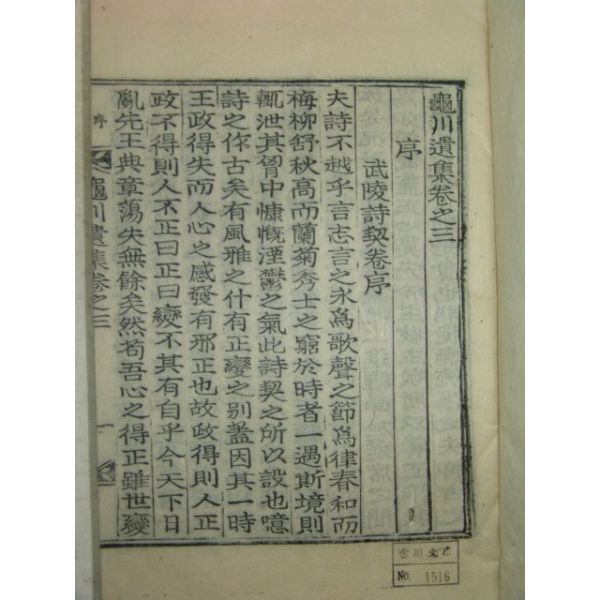 龜川遺集卷之三
序
武陵詩契卷序
夫詩不越乎言志言之永爲歌聲之節爲律春和而
梅柳舒秋高而蘭菊秀士之窮於時者一遇斯境則
輒泄其胷中慷慨湮鬱之氣此詩契之所以設也噫
詩之作古矣有風雅之什有正變之别蓋因其一時
王政得失而人心之感發有邪正也故政得則人正
政不得則人不正曰正曰變不其有自乎今天下日
亂先王典章蕩失無餘矣然苟吾心之得正雖世變
序
龜川遺集卷之三
一
No. 1516